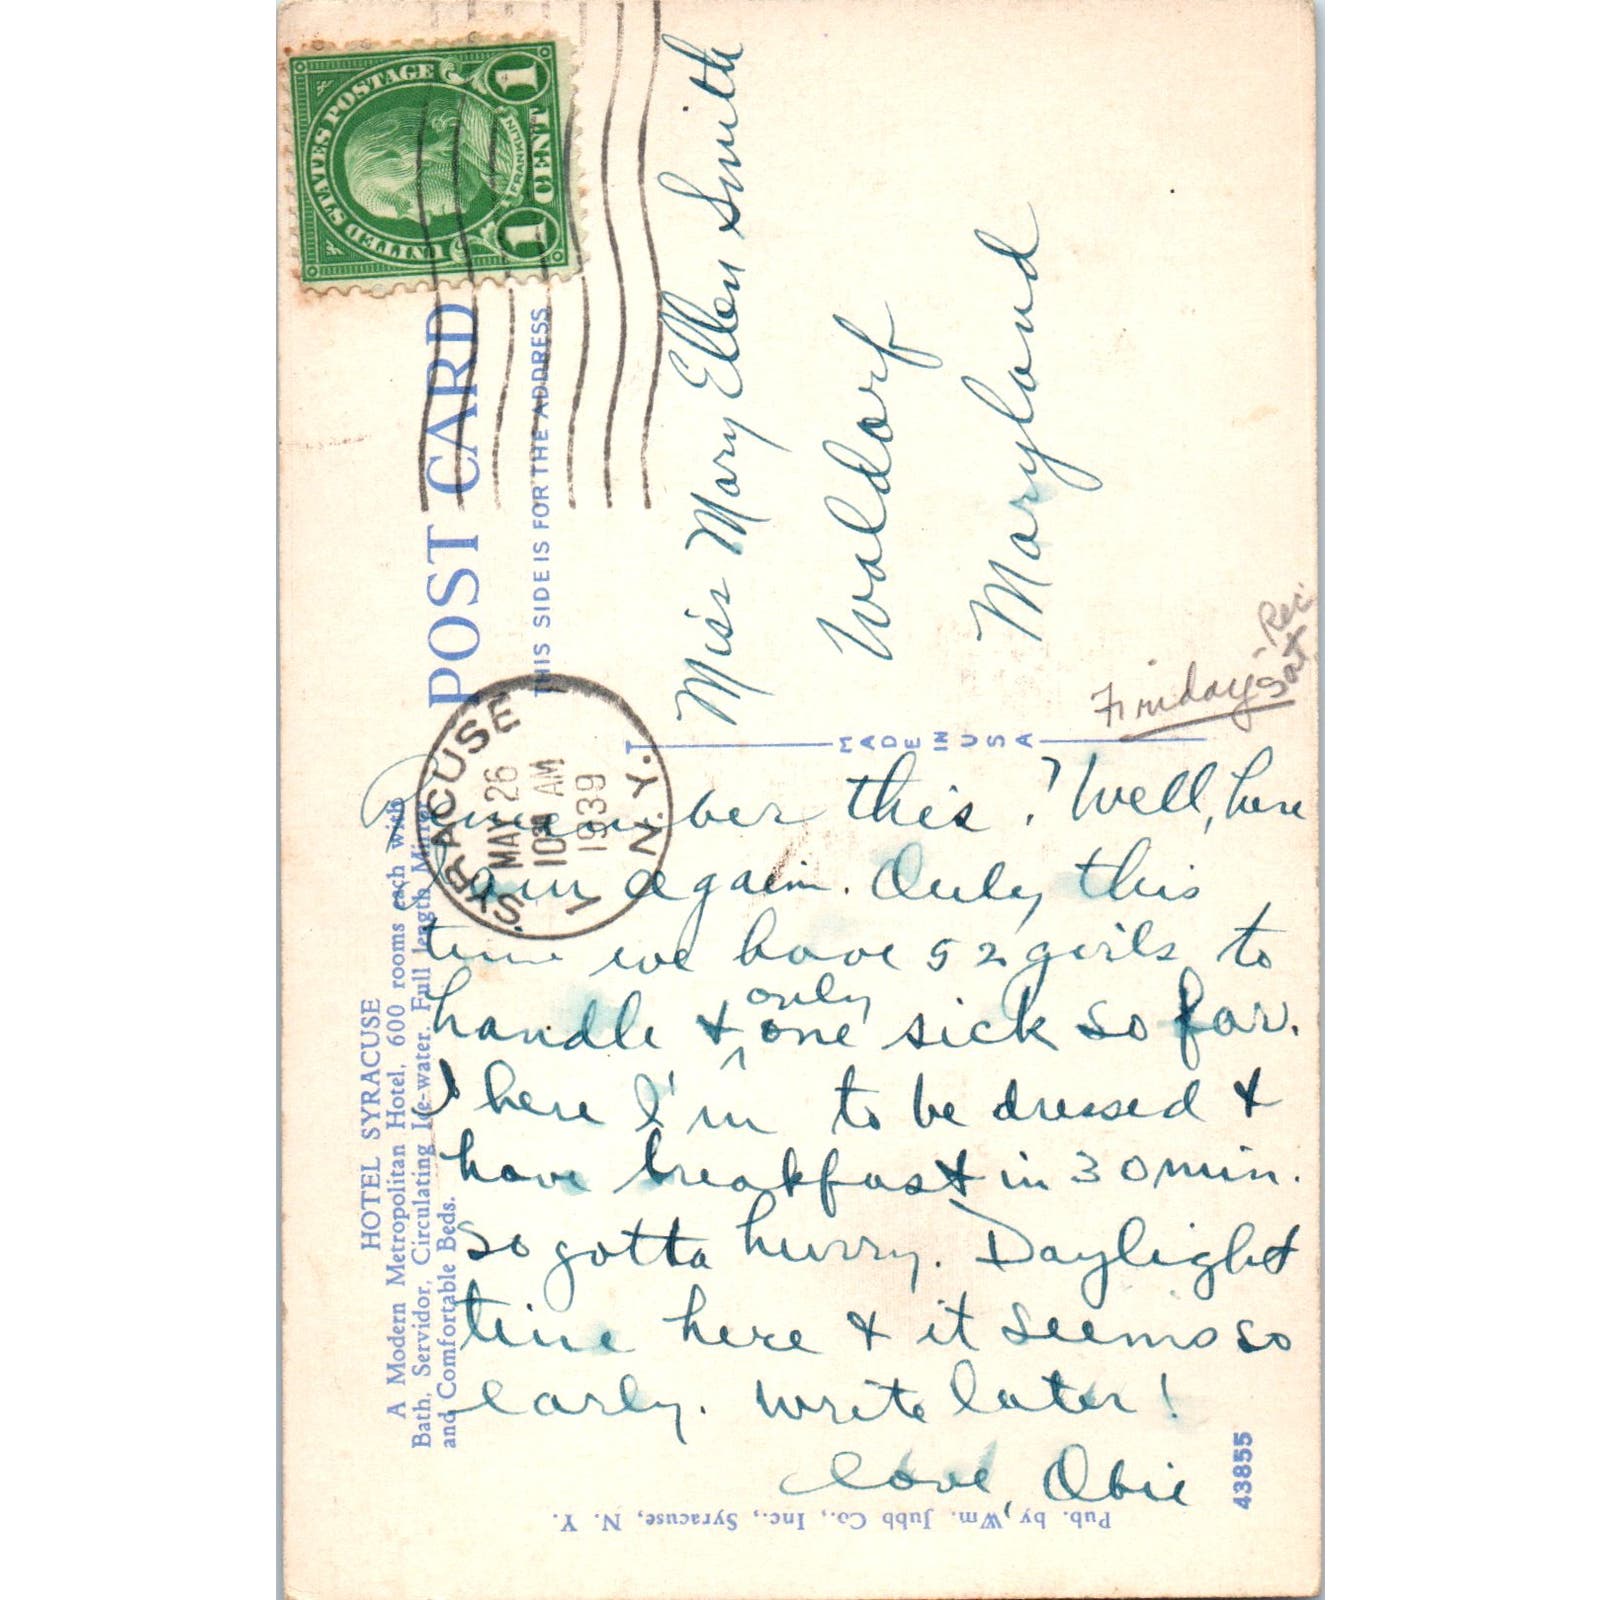 HOTEL SYRACUSE
A Modern Metropolitan Hotel, 600 rooms each with
Bath, Servidor, Circulating Ice-water, Full length Mirror
and Comfortable Beds.
POST CARD
THIS SIDE IS FOR THE ADDRESS
UNITED STATES POSTAGE
FRANKLIN
1 CENT 1
SYRACUSE
MAY 26
10 AM
1939
1
N.Y.
Remember this? Well, here
I am again. Only this
time we have 52 girls to
handle & only one sick so far.
I here I'm to be dressed &
have breakfast in 30 min.
So gotta hurry. Daylight
time here & it seems so
early. Write later!
Love, Obie
MADE IN USA
Miss Mary Ellen Smith
Waldorf
Maryland
Friday - Rec.
Sat.
Pub. by Wm. Jubb Co., Inc., Syracuse, N. Y.
43855